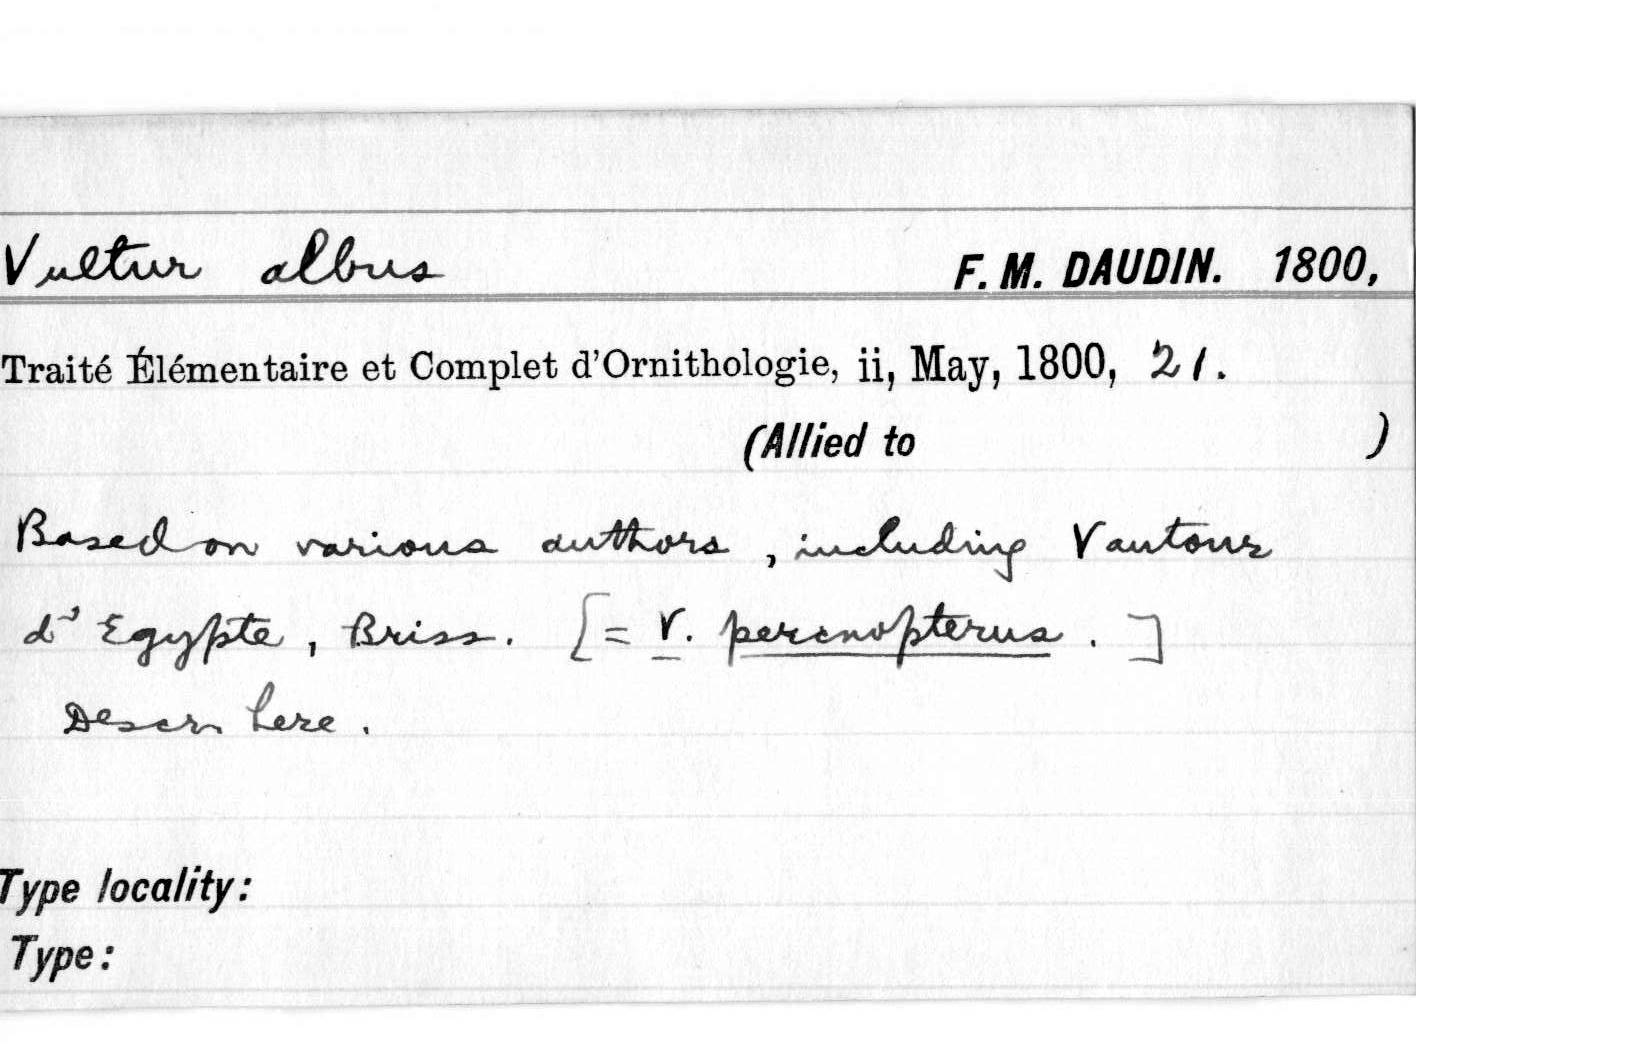 Vultur albus F. M. DAUDIN. 1800,
Traité Élémentaire et Complet d'Ornithologie, ii, May, 1800, 21.
(Allied to )
Based on various authors, including Vautour
d'Egypte, Briss. [= V. percnopterus.]
Descr here.
Type locality:
Type: